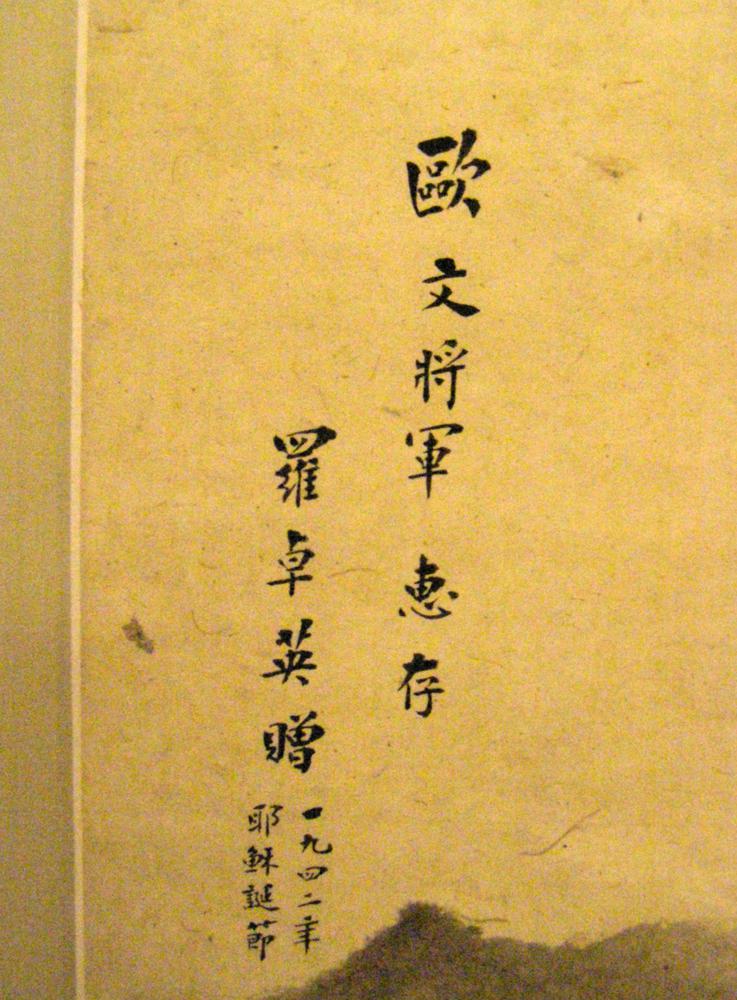 歐文將軍惠存
羅卓英贈
一九四二年
耶穌誕節